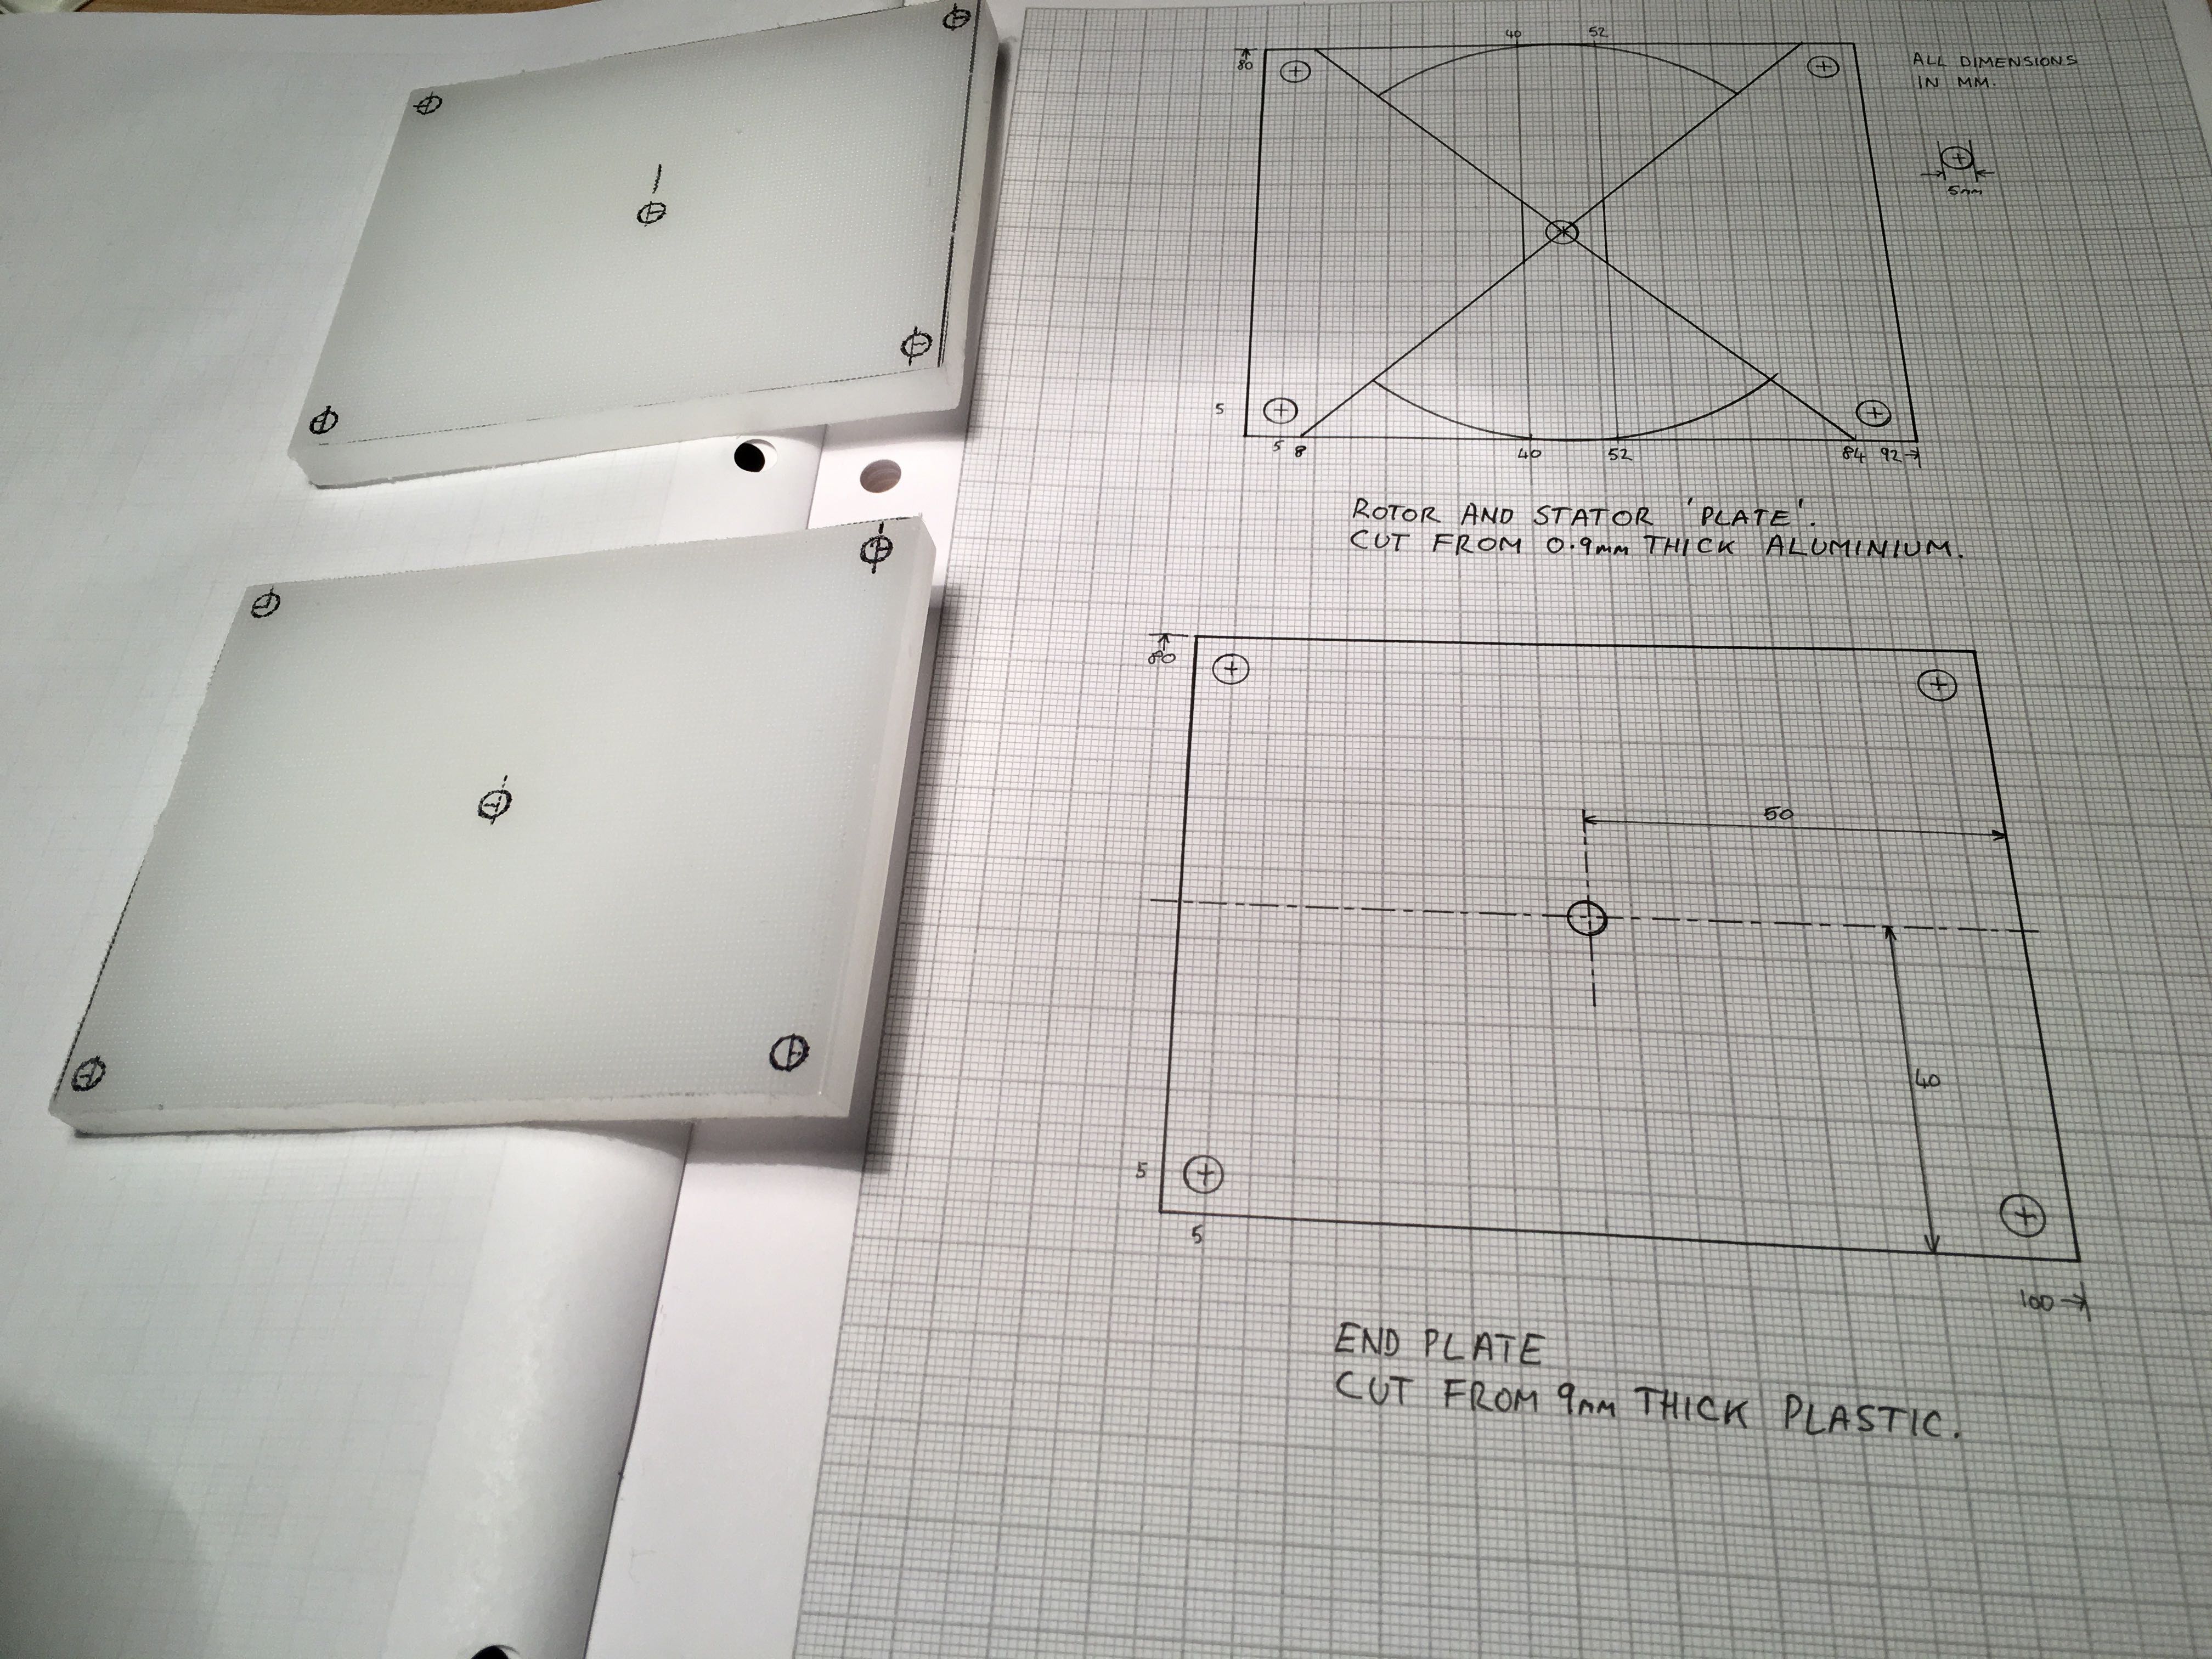 40 52
80
ALL DIMENSIONS
IN MM.
5mm
5
5 8 40 52 84 92
ROTOR AND STATOR 'PLATE'.
CUT FROM 0.9mm THICK ALUMINIUM.
80
50
40
5
5
100
END PLATE
CUT FROM 9mm THICK PLASTIC.